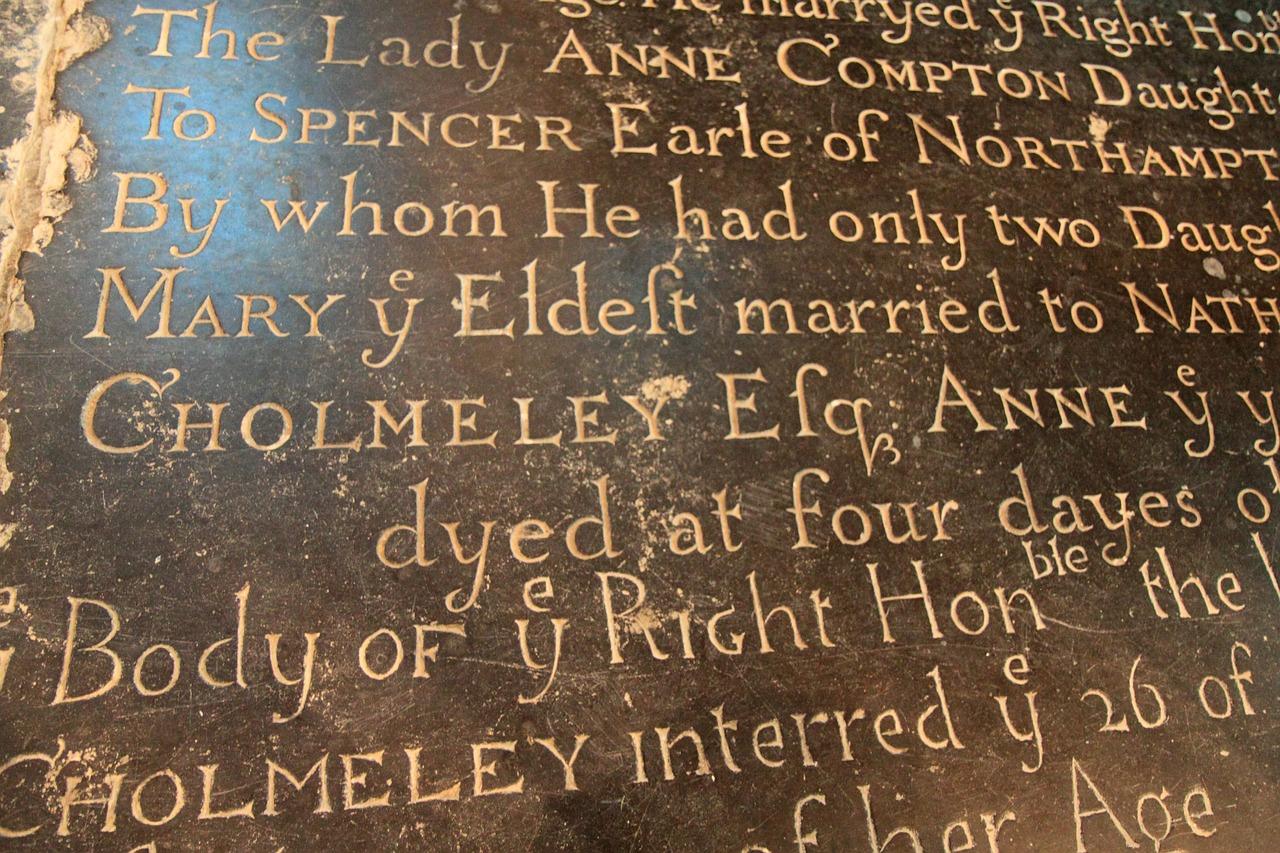 He marryed yᵉ Right Honᵇ
The Lady ANNE COMPTON Daught
To SPENCER Earle of NORTHAMPT
By whom He had only two Daug
MARY yᵉ Eldeſt married to NATH
CHOLMELEY Eſqꝫ ANNE yᵉ y
dyed at four dayes ol
yᵉ Body OF yᵉ Right Honᵇˡᵉ the
CHOLMELEY interred yᵉ 26 of
of her Age